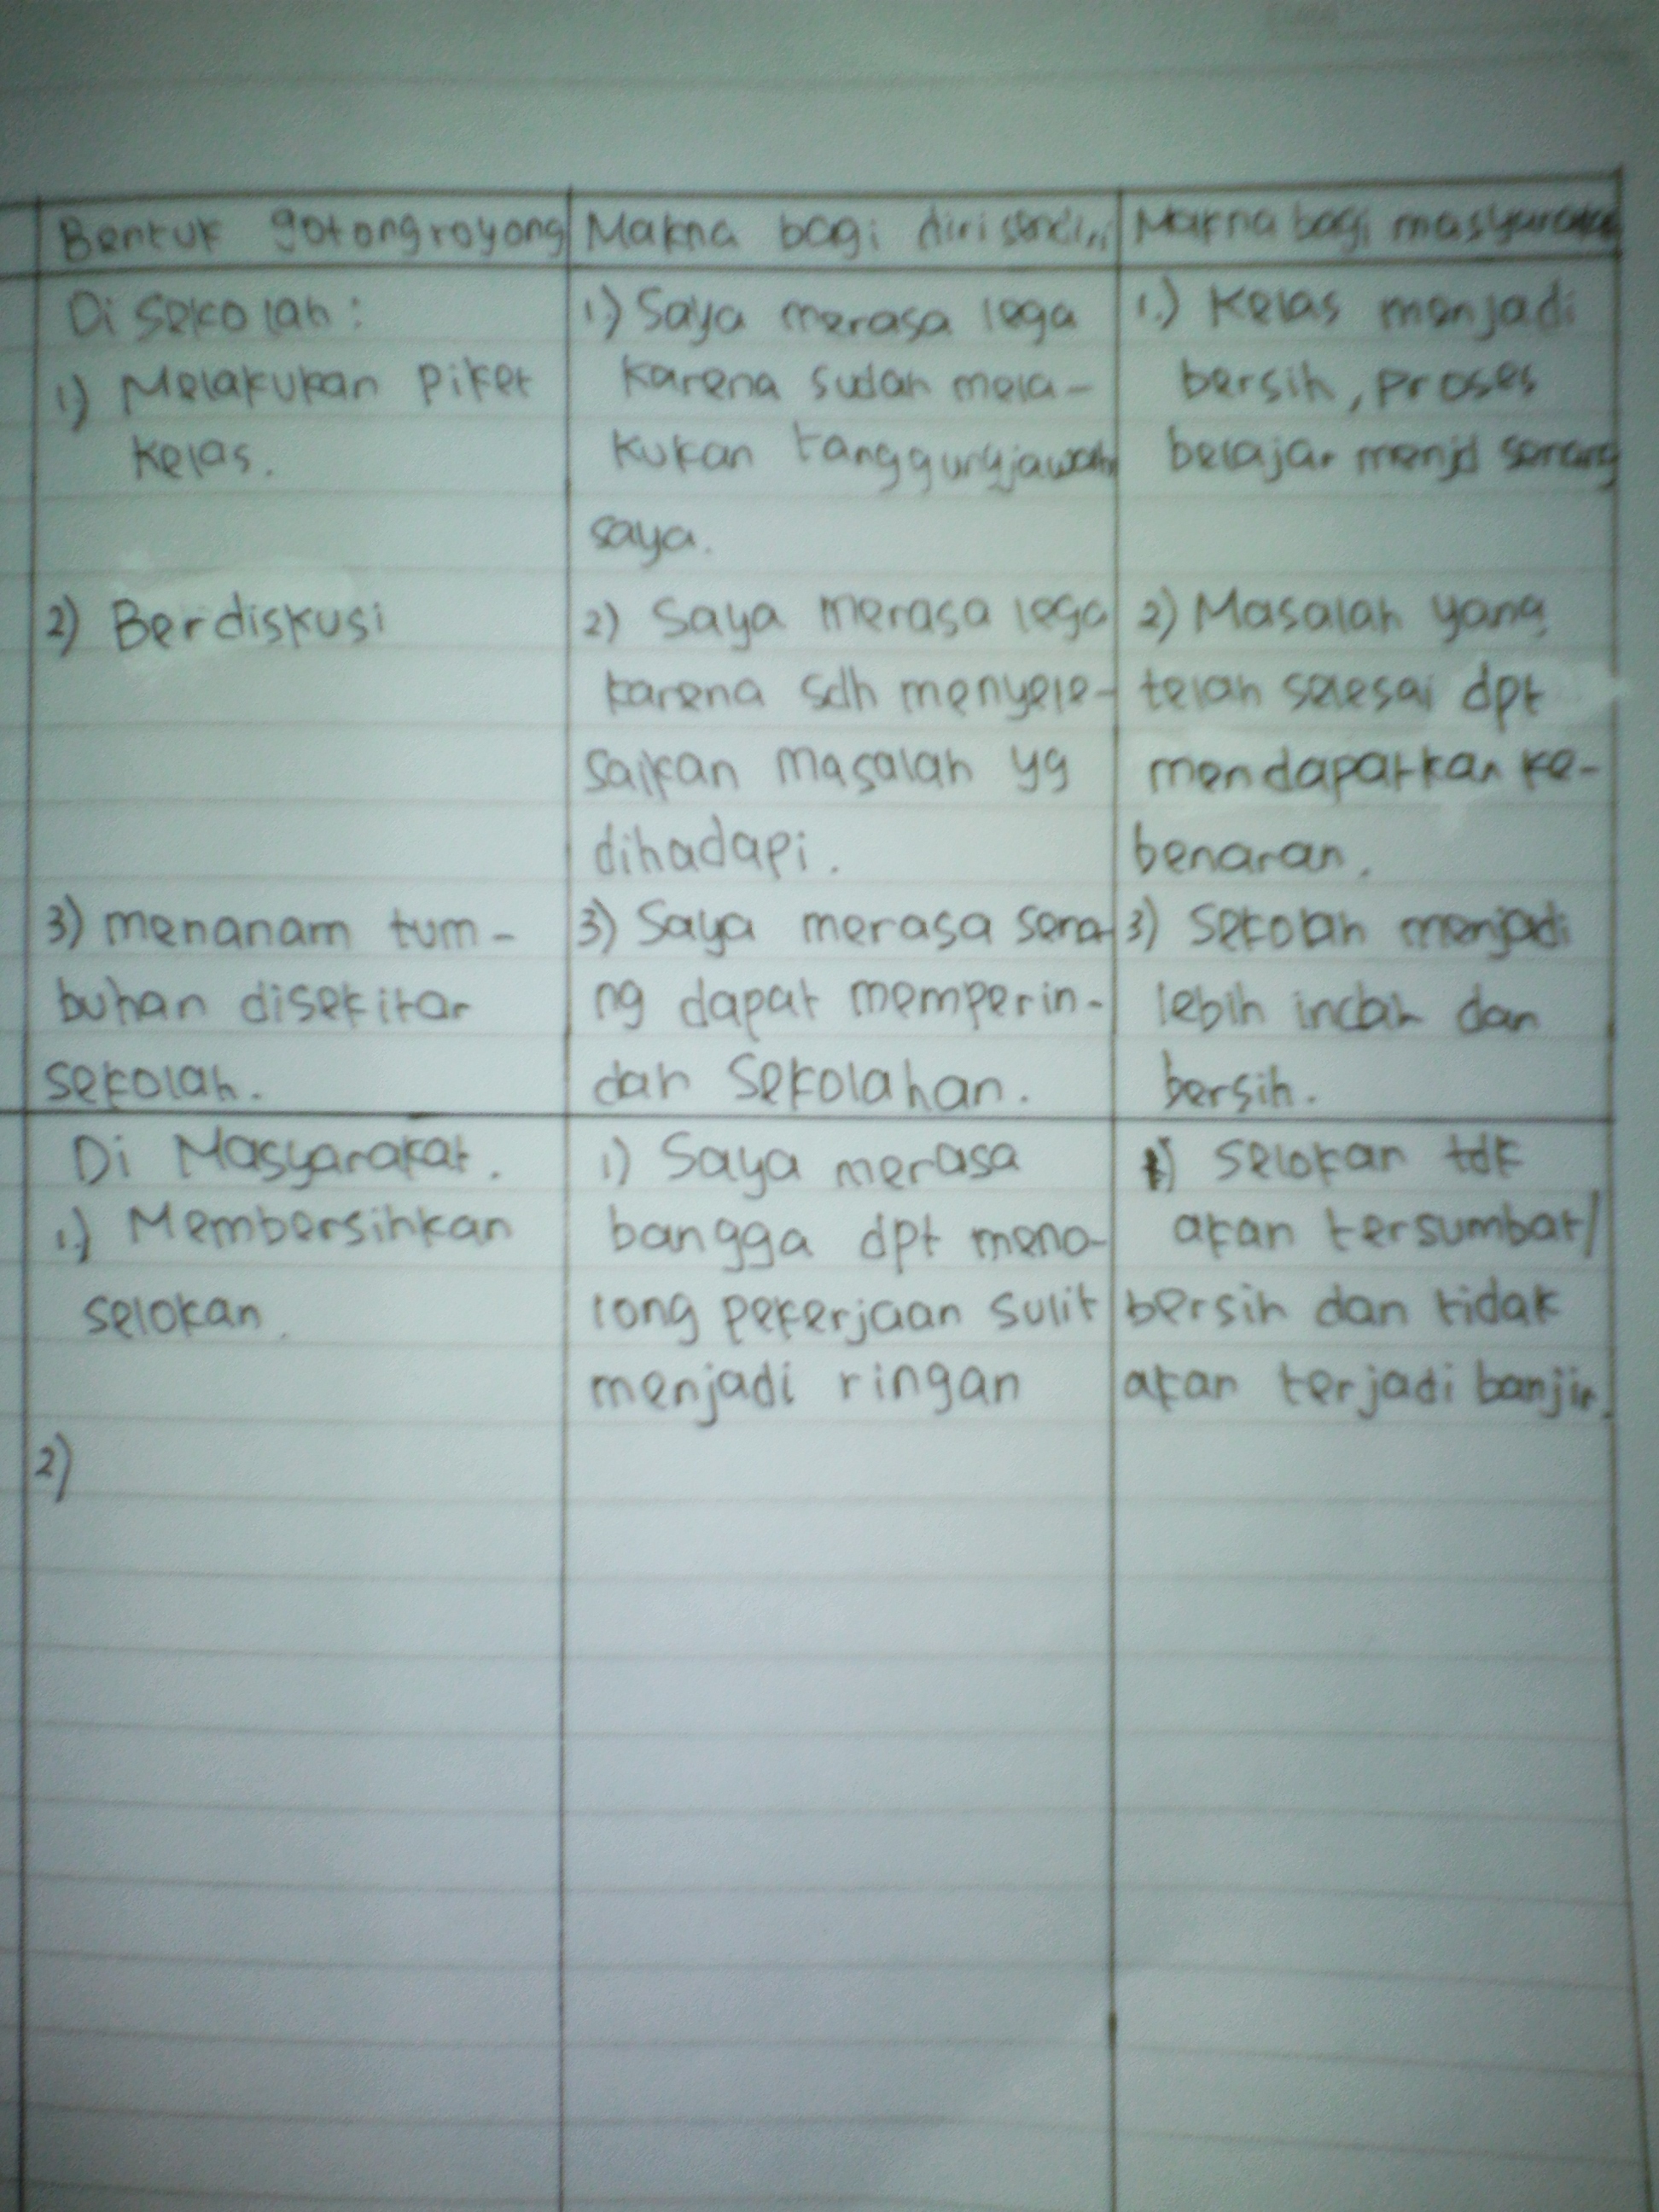 Bentuk gotongroyong
Makna bagi diri sendiri
Makna bagi masyarakat
Di sekolah :
1) Melakukan Piket
kelas.
1) Saya merasa lega
karena sudah mela-
kukan tanggungjawab
saya.
1.) Kelas menjadi
bersih, proses
belajar menjd senang
2) Berdiskusi
2) Saya merasa lega
karena sdh menyele-
saikan masalah yg
dihadapi.
2) Masalah yang
telah selesai dpt
mendapatkan ke-
benaran.
3) menanam tum-
buhan disekitar
sekolah.
3) Saya merasa sena
ng dapat memperin-
dah Sekolahan.
3) Sekolah menjadi
lebih indah dan
bersih.
Di Masyarakat.
1.) Membersihkan
selokan.
1) Saya merasa
bangga dpt meno-
long pekerjaan sulit
menjadi ringan
1) Selokan tdk
akan tersumbat/
bersih dan tidak
akan terjadi banjir.
2)